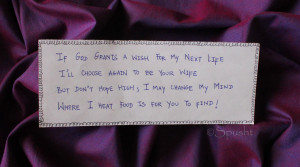 If God Grants a Wish for my Next Life
I'll choose again to be your Wife
But don't hope high; I may change my mind
Where I heat food is for you to find!
©Spusht